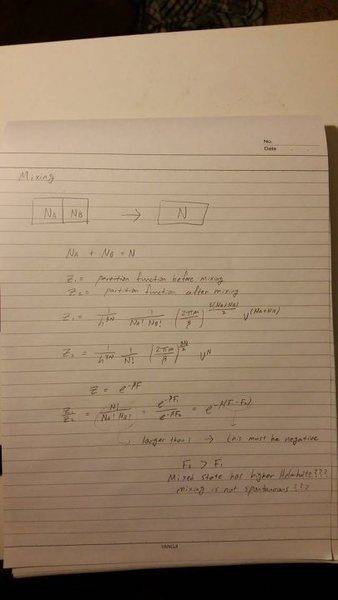 No.
Date
Mixing
N_A N_B → N
N_A + N_B = N
Z_1 = partition function before mixing
Z_2 = partition function after mixing
Z_1 = 1/h^{3N} 1/(N_A! N_B!) (2πm/β)^{3(N_A+N_B)/2} V^{(N_A+N_B)}
Z_2 = 1/h^{3N} 1/N! (2πm/β)^{3N/2} V^N
Z = e^{-βF}
Z_1/Z_2 = N!/(N_A! N_B!) = e^{-βF_1}/e^{-βF_2} = e^{-β(F_1-F_2)}
larger than 1 → this must be negative
F_2 > F_1
Mixed state has higher Helmholtz???
mixing is not spontaneous???